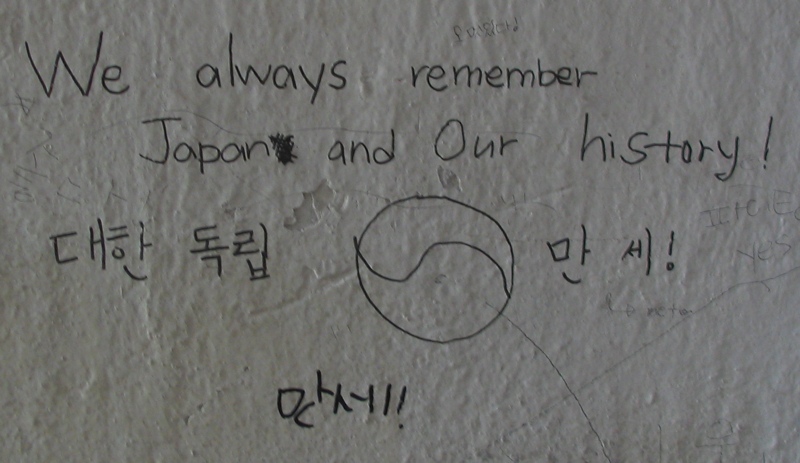 We always remember
Japan and Our history!
대한 독립 만세!
만세!!